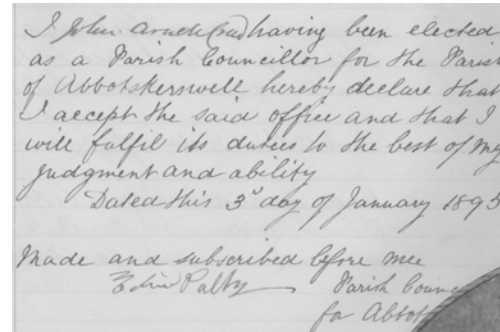 I John Arnell having been elected
as a Parish Councillor for the Parish
of Abbotskerswell hereby declare that
I accept the said office and that I
will fulfil its duties to the best of my
judgment and ability
Dated this 3d day of January 1895
Made and subscribed before me
Parish Counc
for Abbots